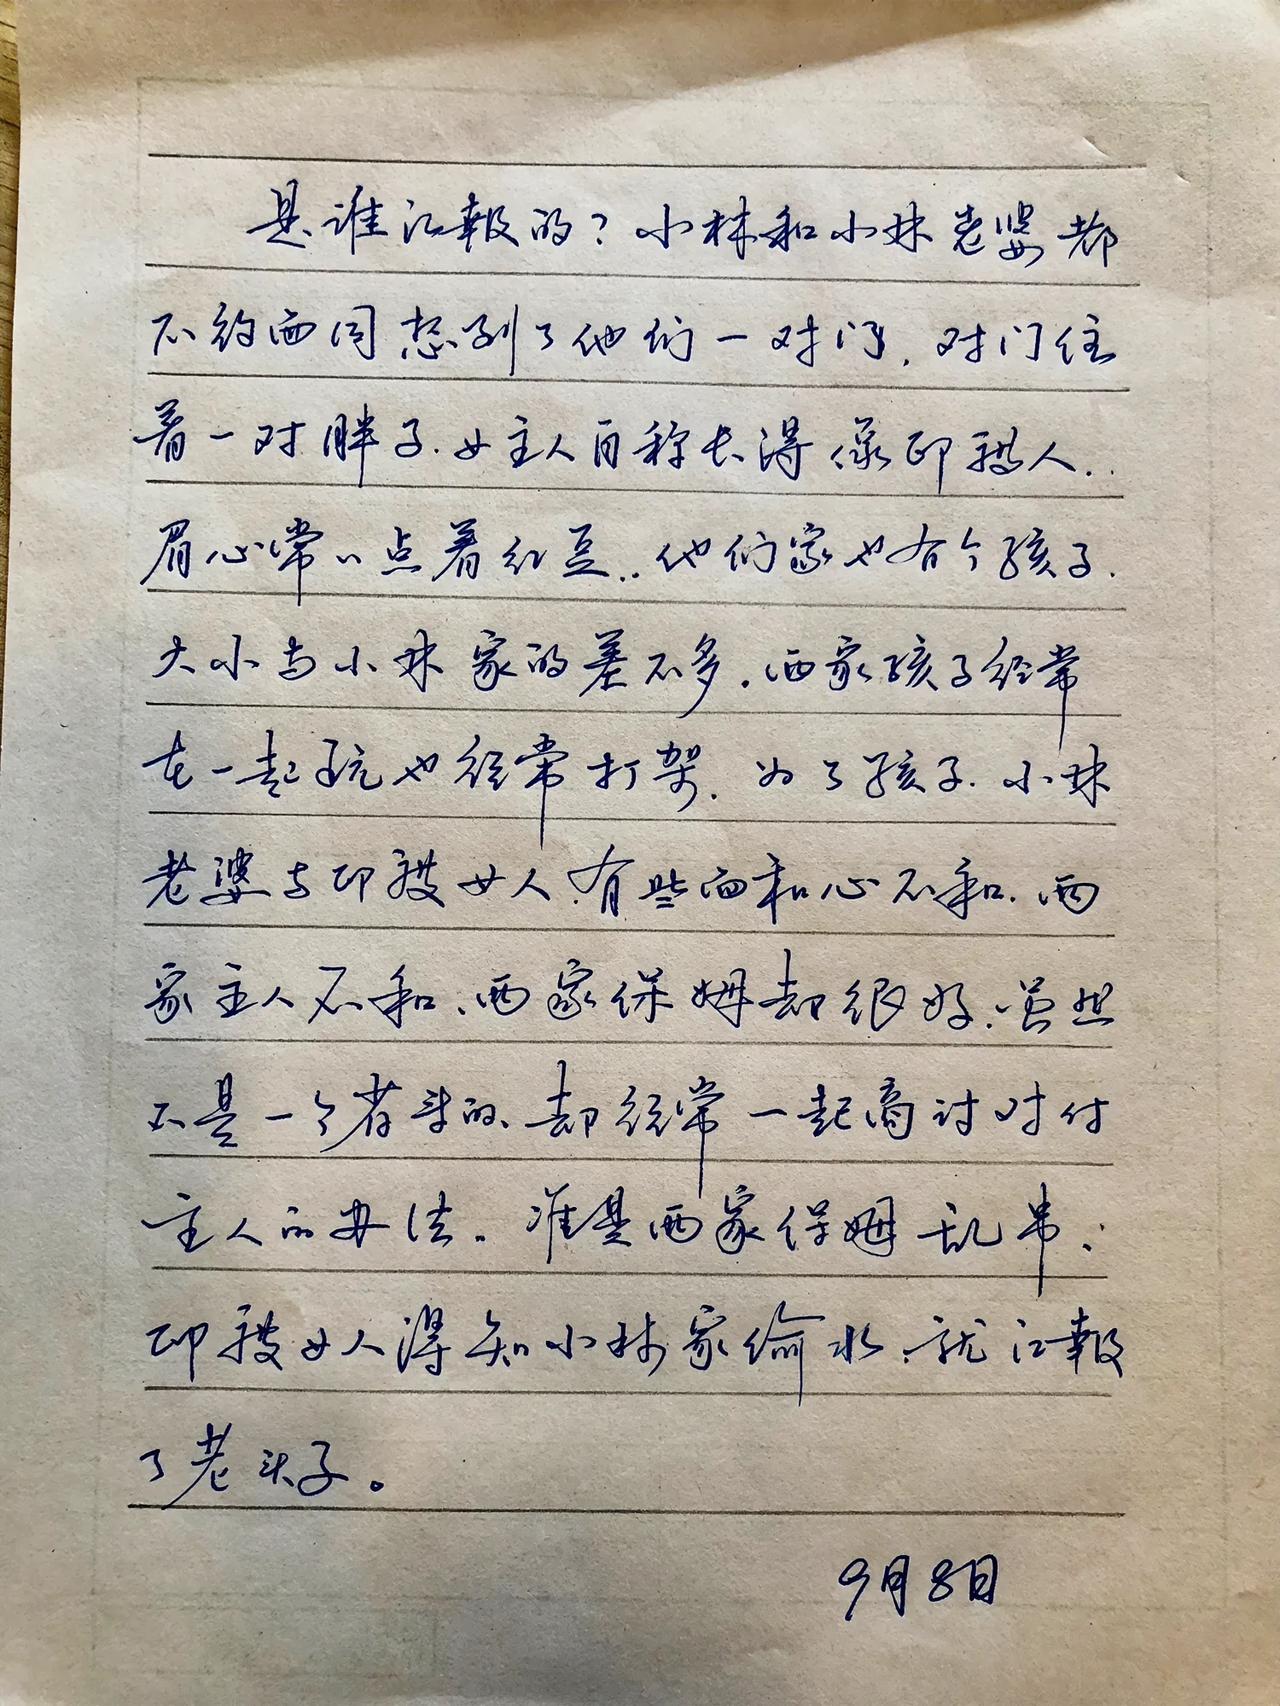 是谁汇報的？小林和小林老婆都
不约而同想到了他们一对门，对门住
着一对胖子.女主人自称长得像印度人..
眉心常常点着红豆..他们家也有个孩子.
大小与小林家的差不多.两家孩子经常
在一起玩也经常打架.为了孩子.小林
老婆与印度女人有些面和心不和.两
家主人不和、两家保姆却很好.虽然
不是一个省来的、却经常一起商讨对付
主人的办法。准是两家保姆乱串、
印度女人得知小林家偷水、就汇報
了老头子。
9月8日